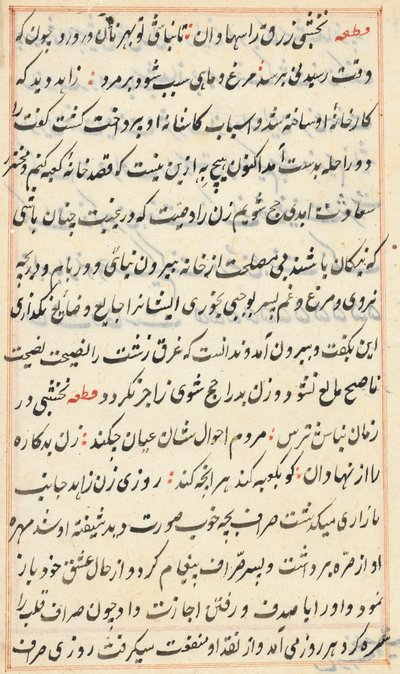 قطعه نخشبی رزق را سبها دان تا نیائی تو بهر نان در درد چون که
وقت رسیدنی برسد مرغ و ماهی سبب شود بر مرد زاهد دید که
کارخانهٔ او ساخته شد و اسباب کاشانهٔ او پرداخت گشت گفت
دو راحله بدست آمد اکنون هیچ به ازین نیست که قصد خانه کعبه کنم و
سعادت ابدی حج شویم زن را وصیت که در غیبت چنان باشی
که نیکان باشند بی مصلحت از خانه بیرون نیائی و در بام و دریچه
نروی و مرغ و غم پسر بوجبی بخوری ایشانرا جایع و ضایع نگذاری
این بگفت و بیرون آمد و ندانست که عرق زشت را نصیحت نصیحت
ناصح مانع نشود و زن بد را حج شوی زاجر نگردد قطعه نخشبی در
زمان نیاس ترس مردم احوال شان عیان چکند زن بدکاره
را از نهادان کو بگوبه کند هر انچه کند روزی زن زاهد جانب
بازاری میگذشت صراف بچه خوب صورت دید شیفته او شد مهره
او از حره برداشت و پسر صراف پیغام کرد و از حال عشق خود باز
نمود و اورا با صدف و رفتن اجازت داد چون صراف قلب را
سره کرد هر روز می آمد و از نقد او منفعت میگرفت روزی صراف